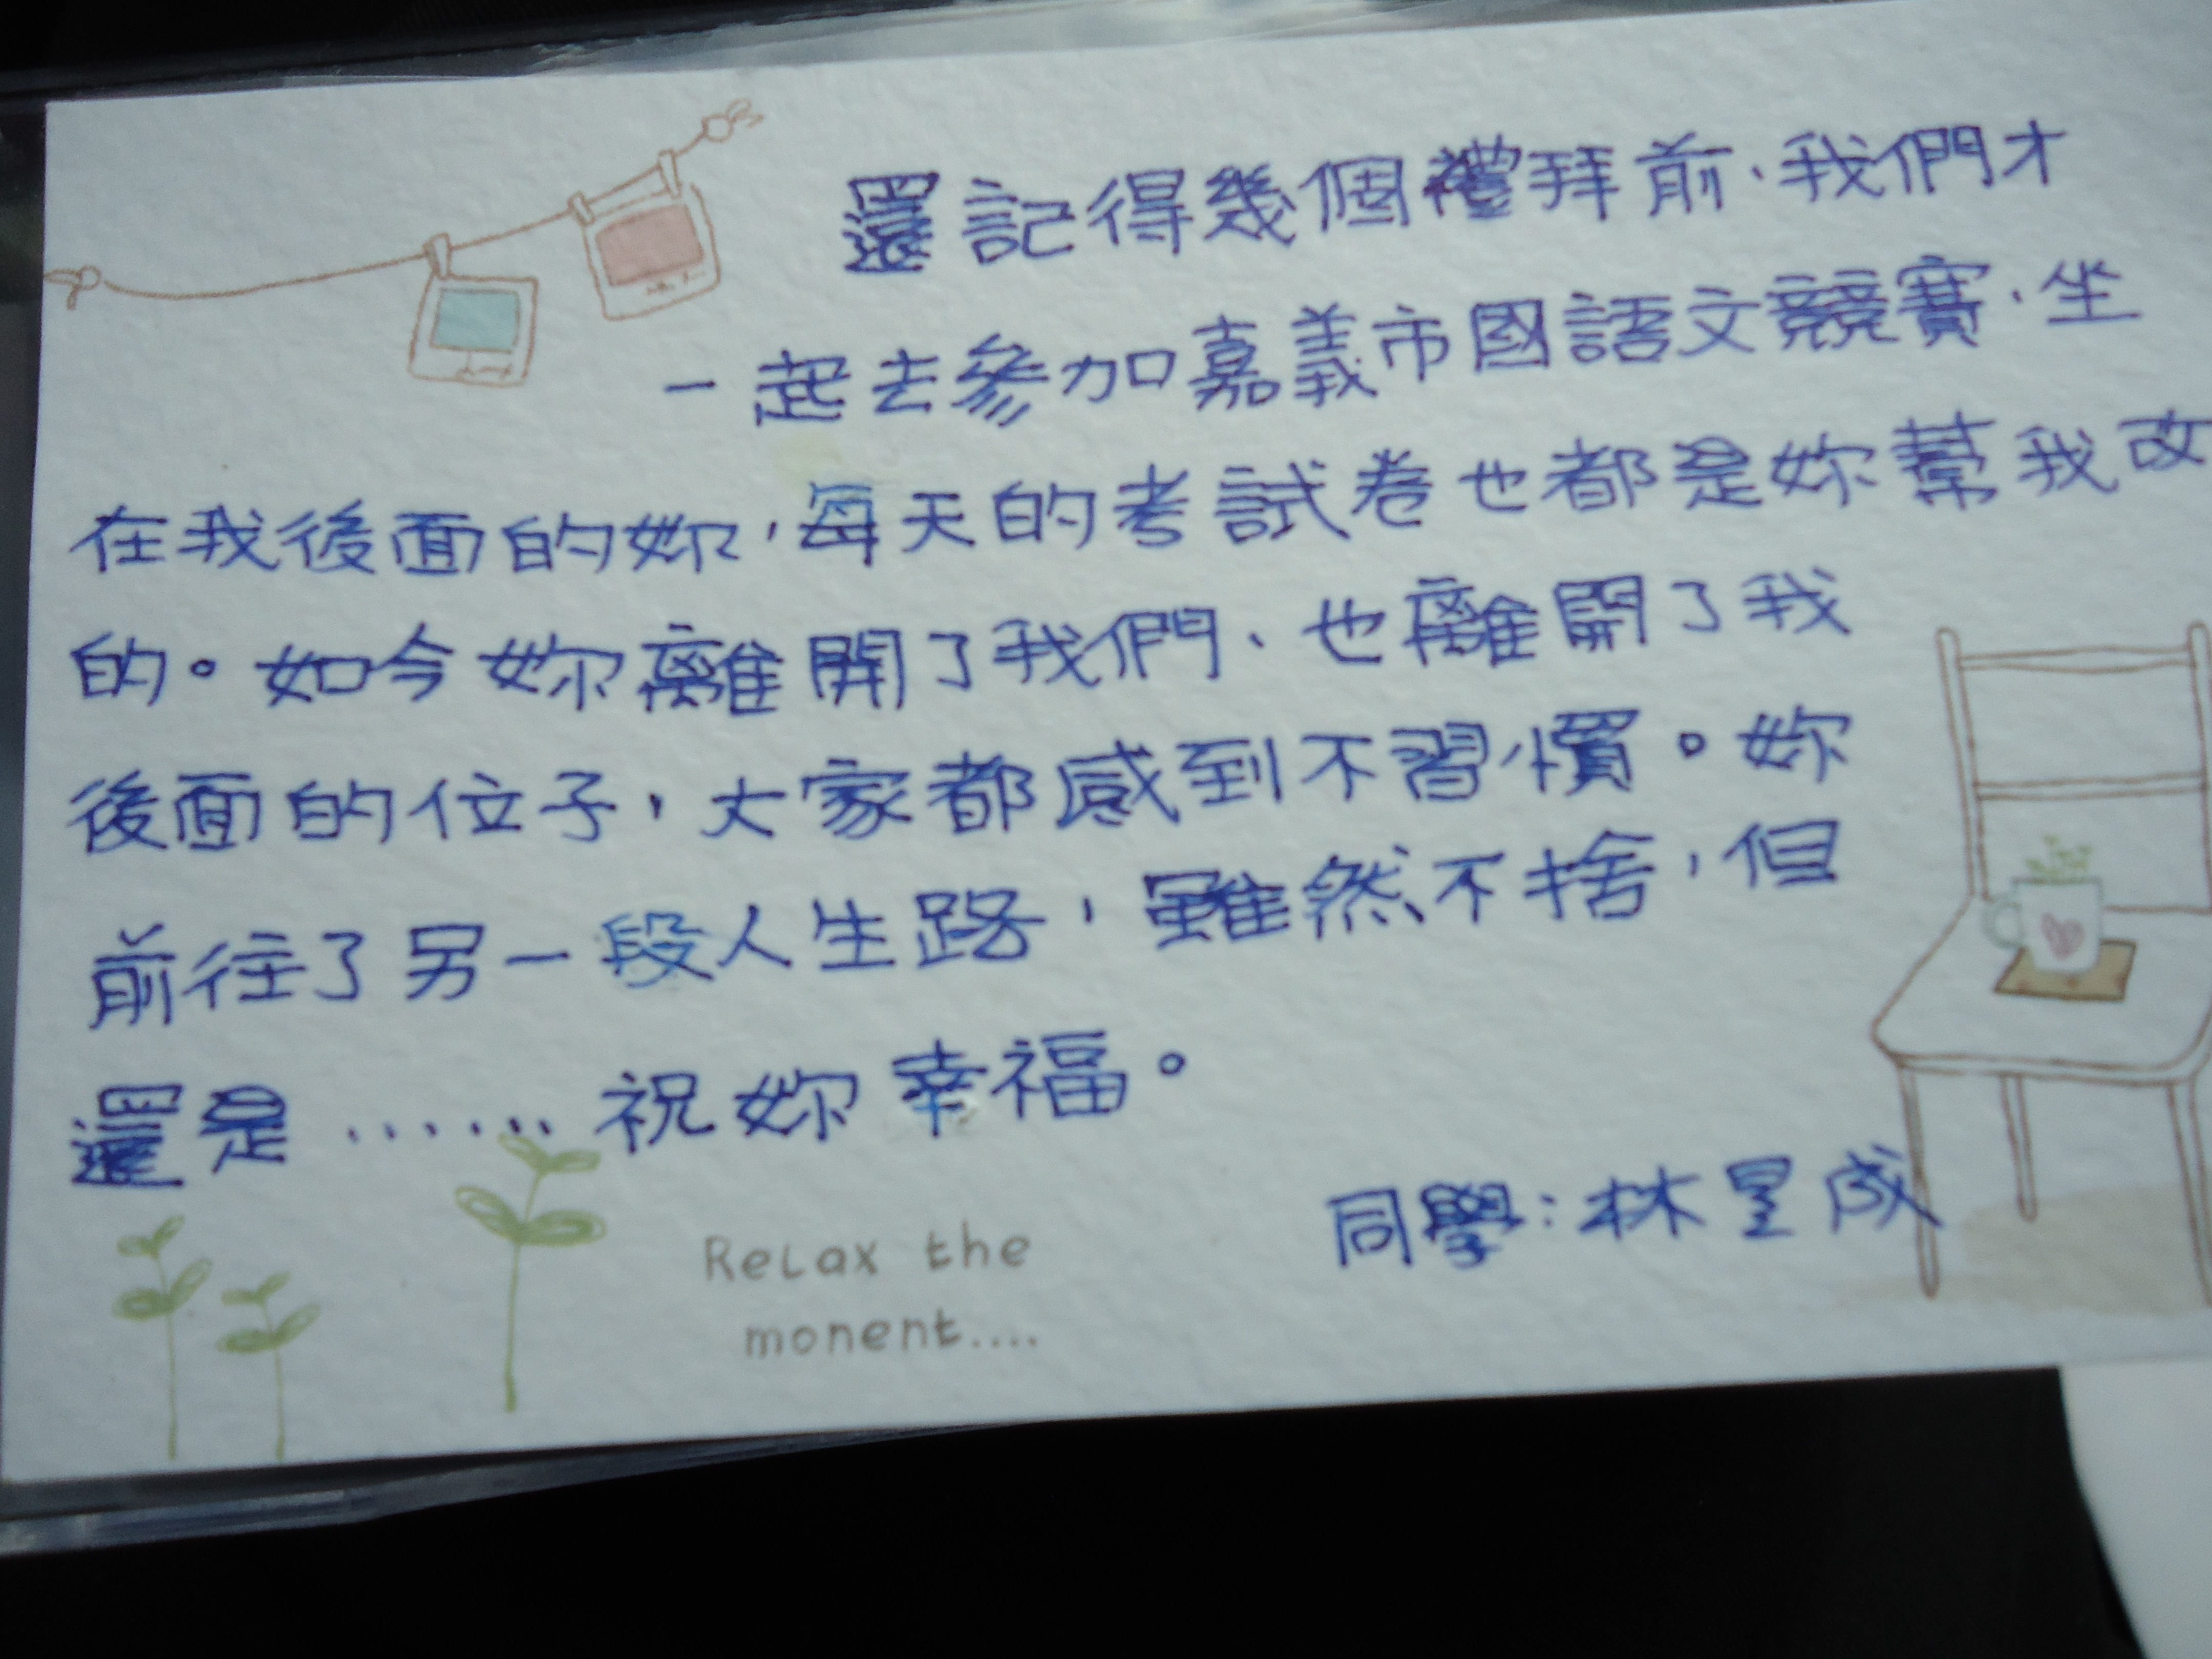 還記得幾個禮拜前、我們才
一起去參加嘉義市國語文競賽、坐
在我後面的妳，每天的考試卷也都是妳幫我改
的。如今妳離開了我們、也離開了我
後面的位子，大家都感到不習慣。妳
前往了另一段人生路，雖然不捨，但
還是……祝妳幸福。
同學：林星成
Relax the
monent....